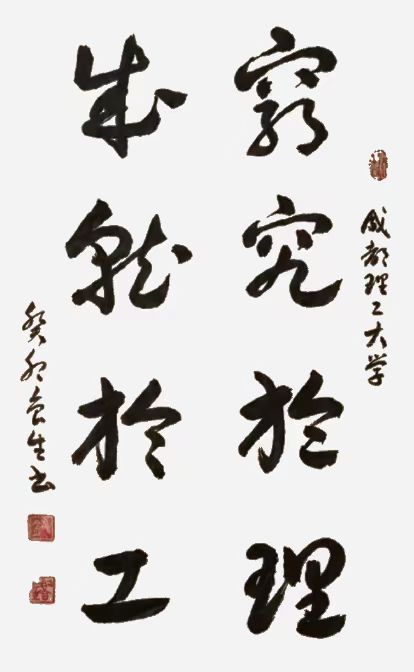 成都理工大学
窮究於理
成就於工
癸卯食生书